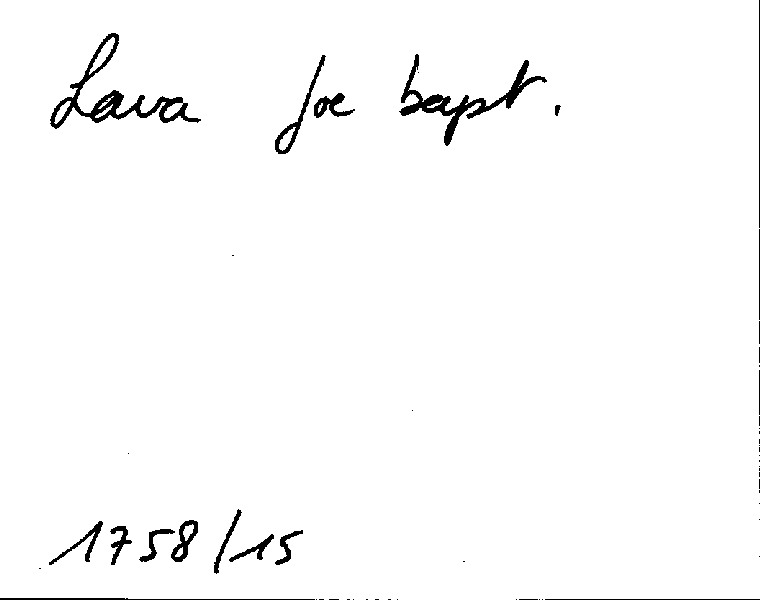 Lava Joe bapt.
1758/15